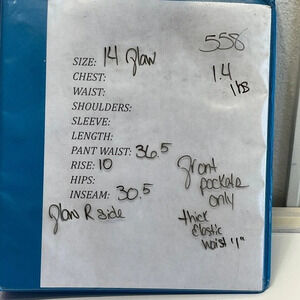 558
SIZE: 14 flaw
1.4
lbs
CHEST:
WAIST:
SHOULDERS:
SLEEVE:
LENGTH:
PANT WAIST: 36.5
RISE: 10
HIPS:
INSEAM: 30.5
flaw R side
front
pockets
only
thick
Elastic
waist "1"